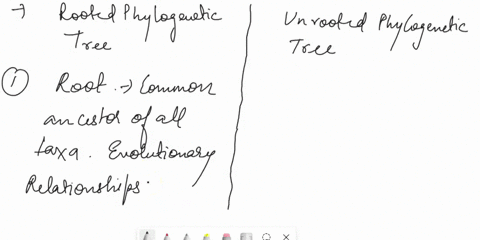 → Rooted Phylogenetic
Tree
① Root → Common
ancestor of all
taxa. Evolutionary
Relationships.
Unrooted Phylogenetic
Tree